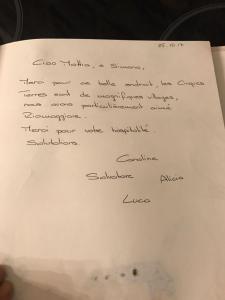 05.10.17
Ciao Mattia, e Simona,
Merci pour ce belle endroit, les Cinque
Terres sont de magnifiques villages,
nous avons particulièrement aimé
Riomaggiore.
Merci pour votre hospitalité.
Salutations.
Caroline
Salvatore Alicia
Luca